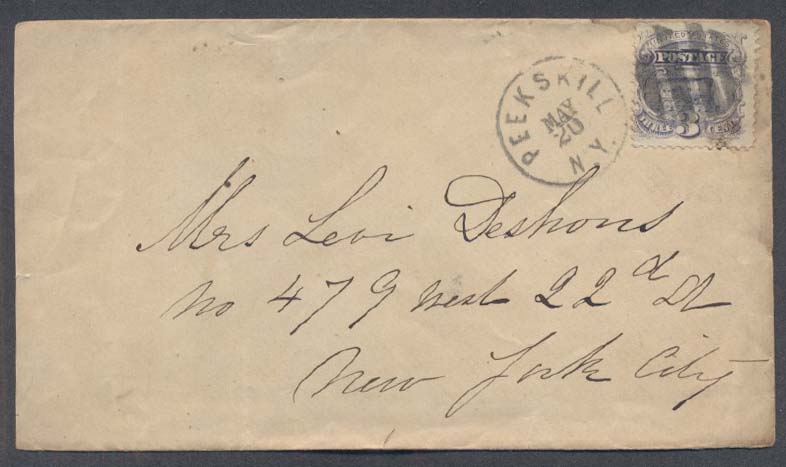 UNITED STATES
POSTAGE
3
PEEKSKILL
MAY
20
N.Y.
Mrs Levi Deshons
No 479 West 22d St
New York City